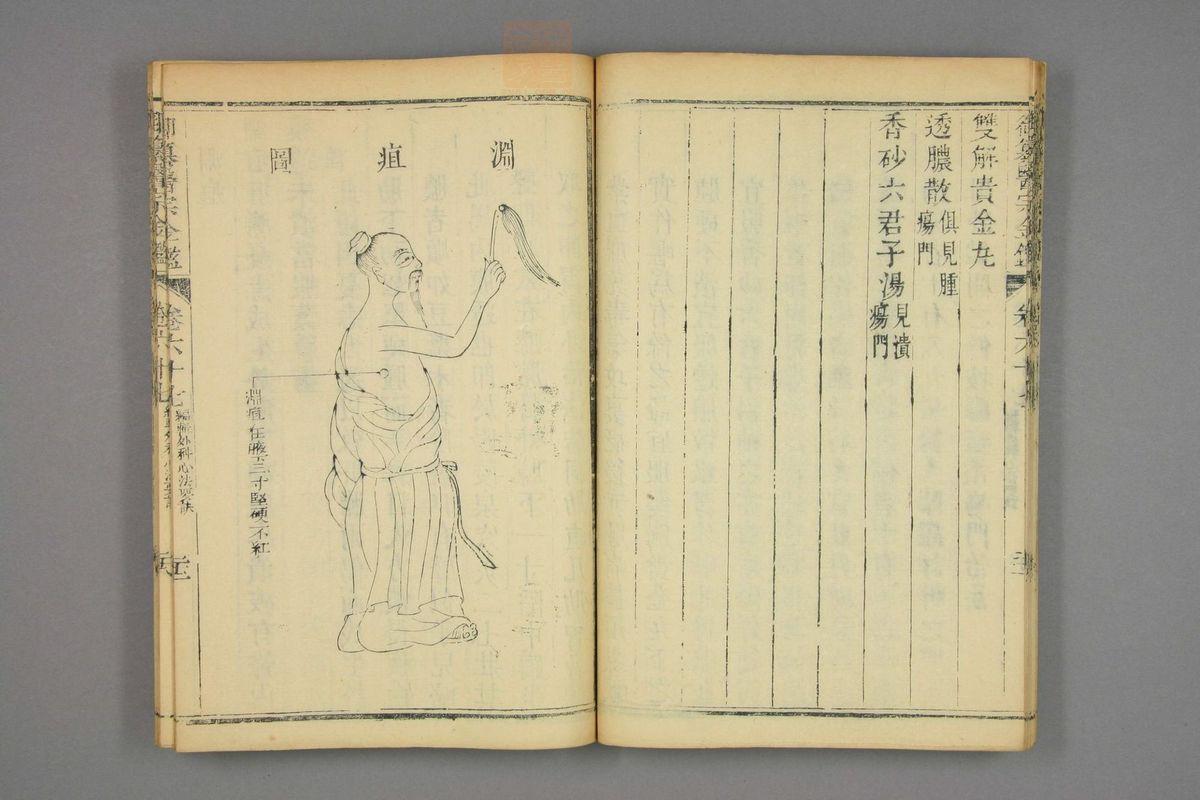 雙解貴金丸
透膿散俱見腫
瘍門
香砂六君子湯見潰
瘍門
淵疽圖
淵疽在腋下三寸堅硬不紅
御纂醫宗金鑑 卷六十七 編輯外科心法要訣